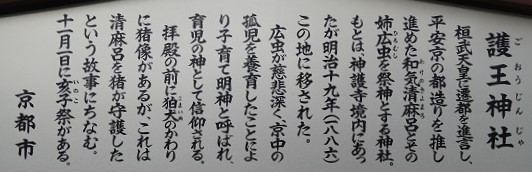 護王神社
ごおうじんじゃ
桓武天皇に遷都を進言し、
平安京の都造りを推し
進めた和気清麻呂とその
わけのきよまろ
姉広虫を祭神とする神社。
ひろむし
もとは、神護寺境内にあっ
たが明治十九年(一八八六)
この地に移された。
広虫が慈悲深く、京中の
孤児を養育したことによ
り子育て明神と呼ばれ、
育児の神として信仰される。
拝殿の前に狛犬のかわり
こまいぬ
に猪像があるが、これは
清麻呂を猪が守護した
という故事にちなむ。
十一月一日に亥子祭がある。
いのこ
京都市